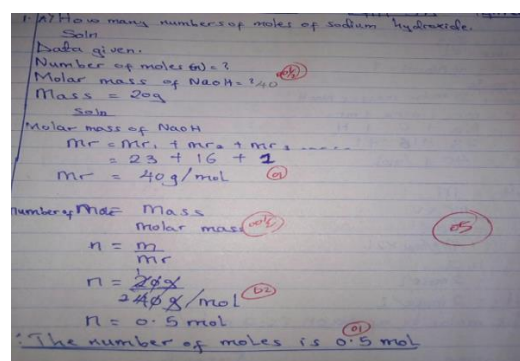 1. (A) How many numbers of moles of sodium hydroxide.
Soln
Data given.
Number of moles (n) = ?
Molar mass of NaOH = 40 00½
Mass = 20g
Soln
Molar mass of NaOH
Mr = Mr₁ + mr₂ + mr₃ ......
= 23 + 16 + 1
Mr = 40g/mol 01
Number of mole = Mass
Molar mass 00½
05
n = m
mr
n = 20g
40g/mol 02
n = 0.5 mol
∴ The number of moles is 0.5 mol 01